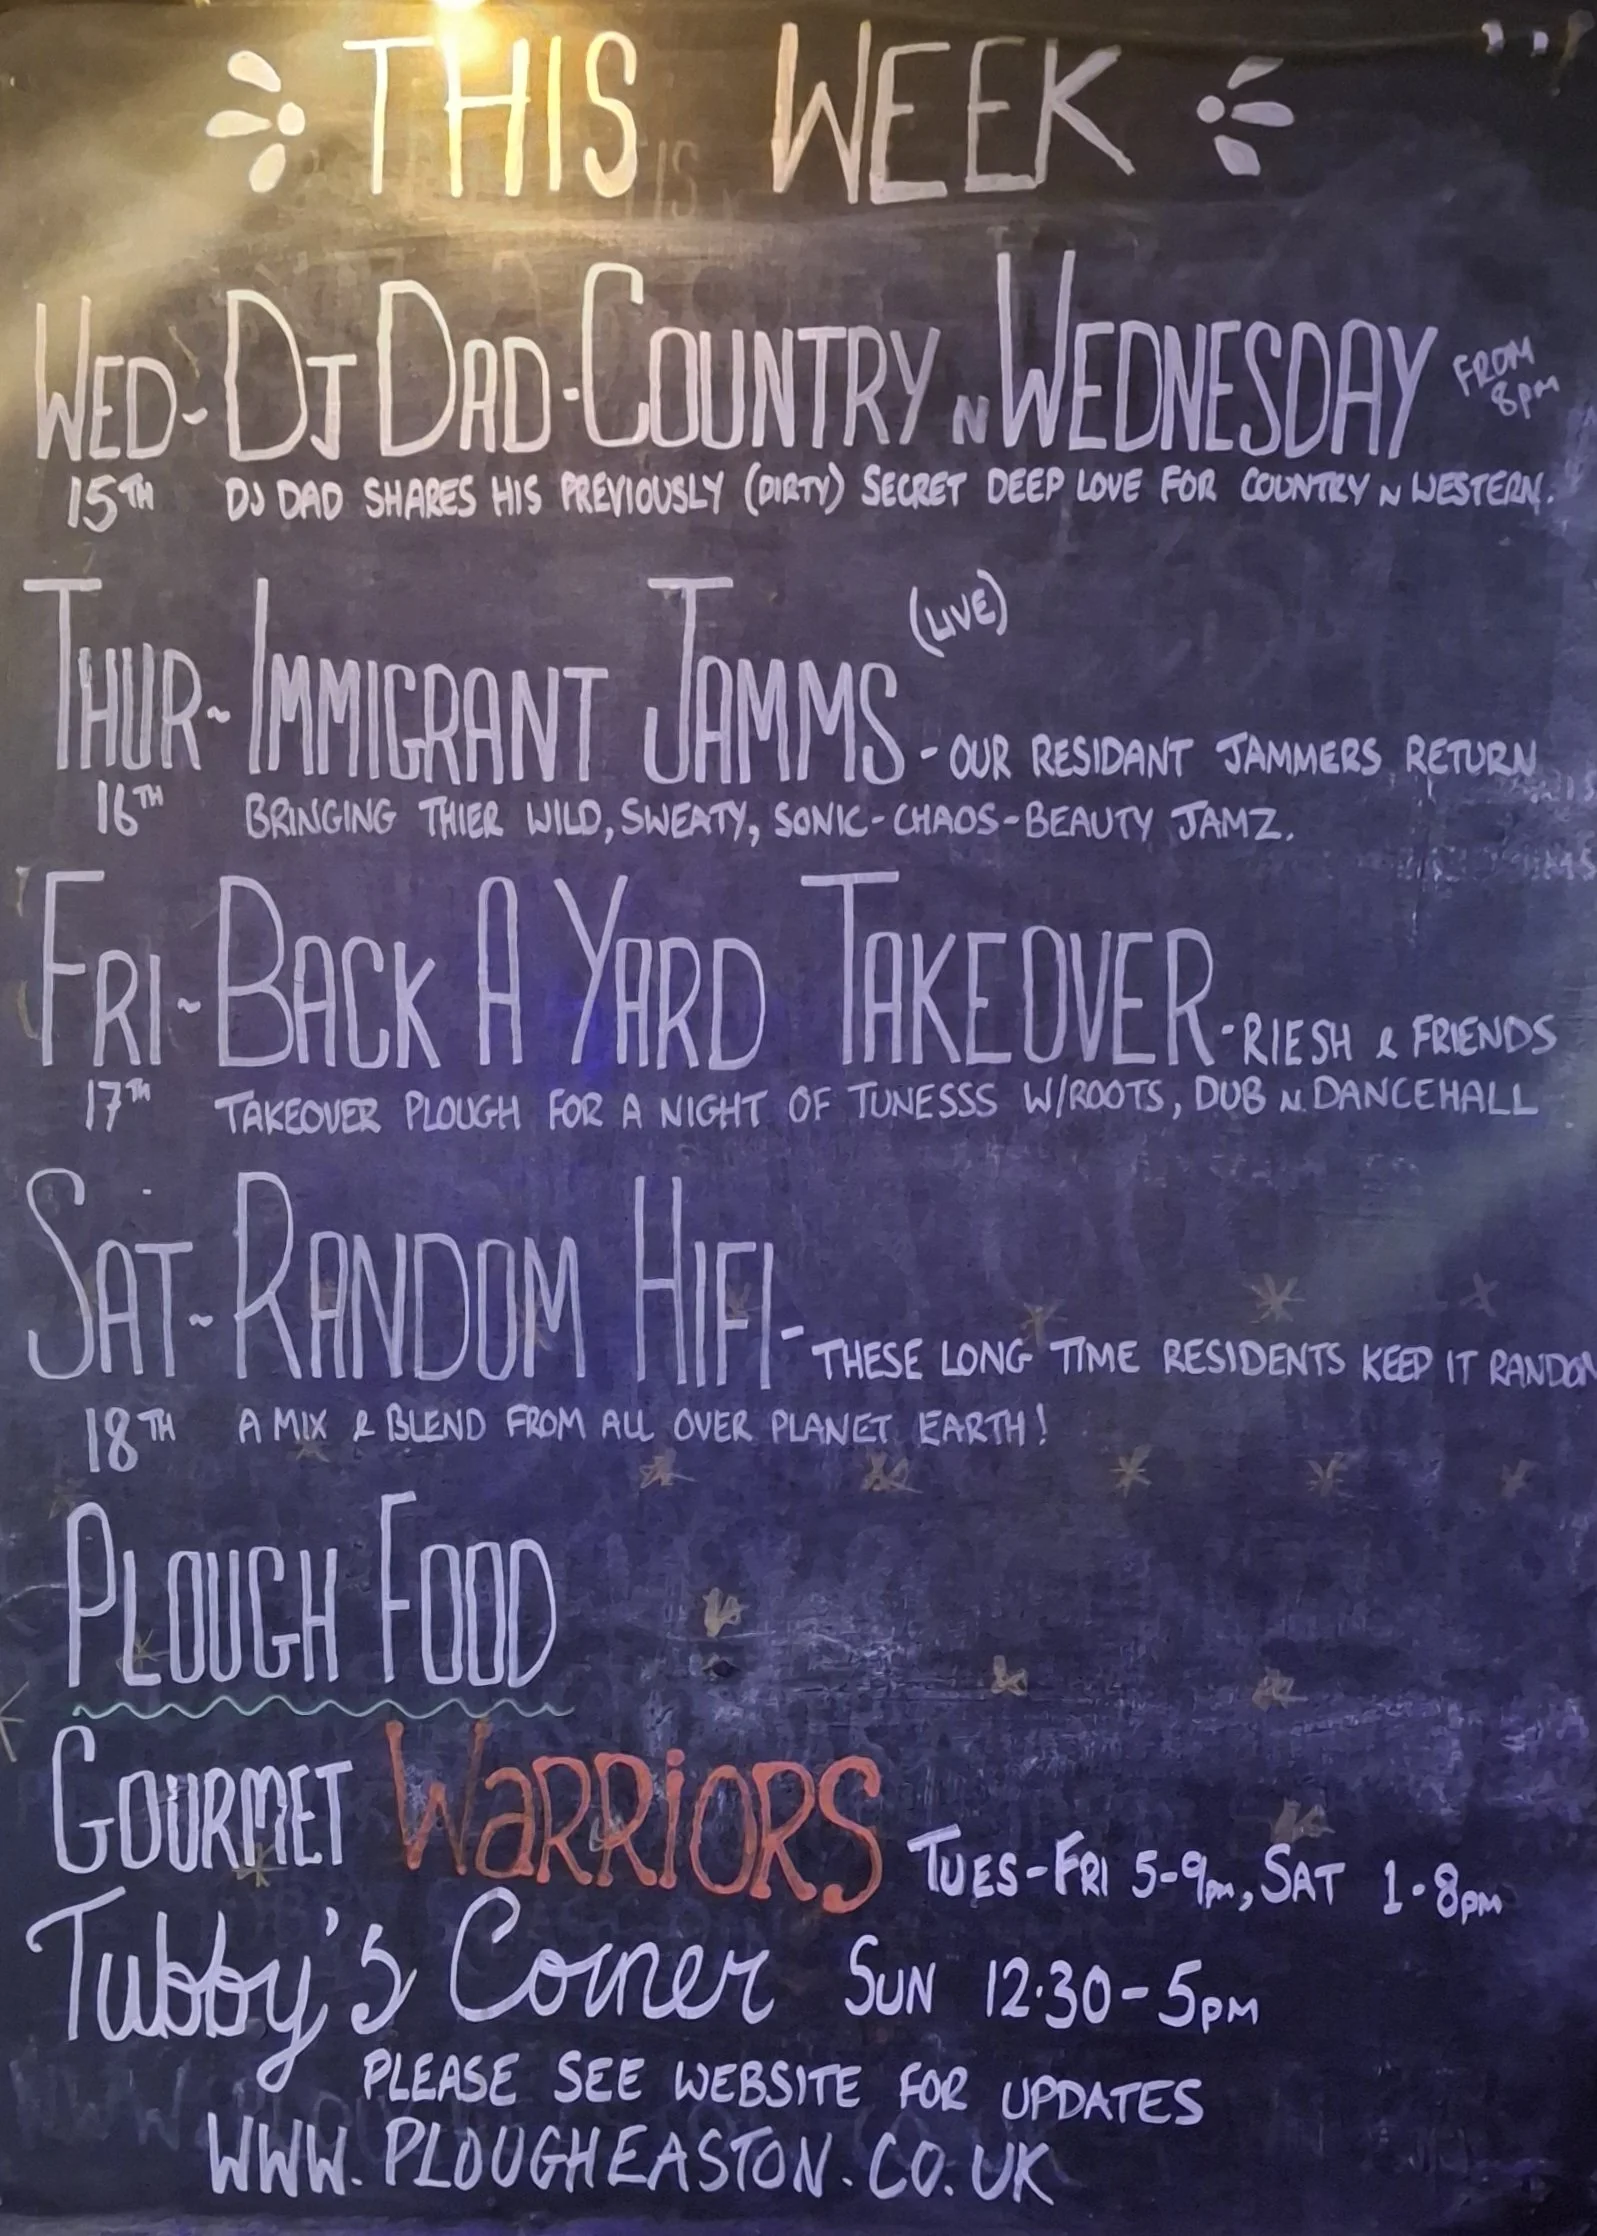 THIS WEEK
WED ~ DJ DAD - COUNTRY N WEDNESDAY FROM 8PM
15TH DJ DAD SHARES HIS PREVIOUSLY (DIRTY) SECRET DEEP LOVE FOR COUNTRY N WESTERN.
THUR ~ IMMIGRANT JAMMS (LIVE) - OUR RESIDANT JAMMERS RETURN
16TH BRINGING THIER WILD, SWEATY, SONIC-CHAOS-BEAUTY JAMZ.
FRI ~ BACK A YARD TAKEOVER - RIESH & FRIENDS
17TH TAKEOVER PLOUGH FOR A NIGHT OF TUNESSS W/ROOTS, DUB N DANCEHALL
SAT ~ RANDOM HIFI - THESE LONG TIME RESIDENTS KEEP IT RANDOM
18TH A MIX & BLEND FROM ALL OVER PLANET EARTH!
PLOUGH FOOD
GOURMET WARRIORS TUES-FRI 5-9PM, SAT 1-8PM
Tubby's Corner SUN 12·30-5PM
PLEASE SEE WEBSITE FOR UPDATES
WWW.PLOUGHEASTON.CO.UK